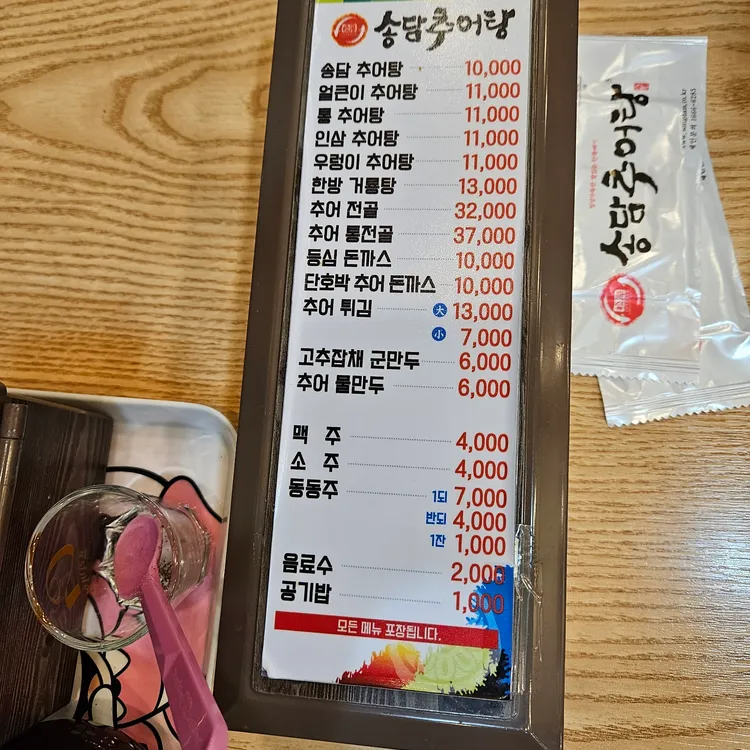 송담추어탕
송담 추어탕 10,000
얼큰이 추어탕 11,000
통 추어탕 11,000
인삼 추어탕 11,000
우렁이 추어탕 11,000
한방 거룡탕 13,000
추어 전골 32,000
추어 통전골 37,000
등심 돈까스 10,000
단호박 추어 돈까스 10,000
추어 튀김 大 13,000
小 7,000
고추잡채 군만두 6,000
추어 물만두 6,000
맥 주 4,000
소 주 4,000
동동주 1되 7,000
반되 4,000
1잔 1,000
음료수 2,000
공기밥 1,000
모든 메뉴 포장됩니다.
송담추어탕